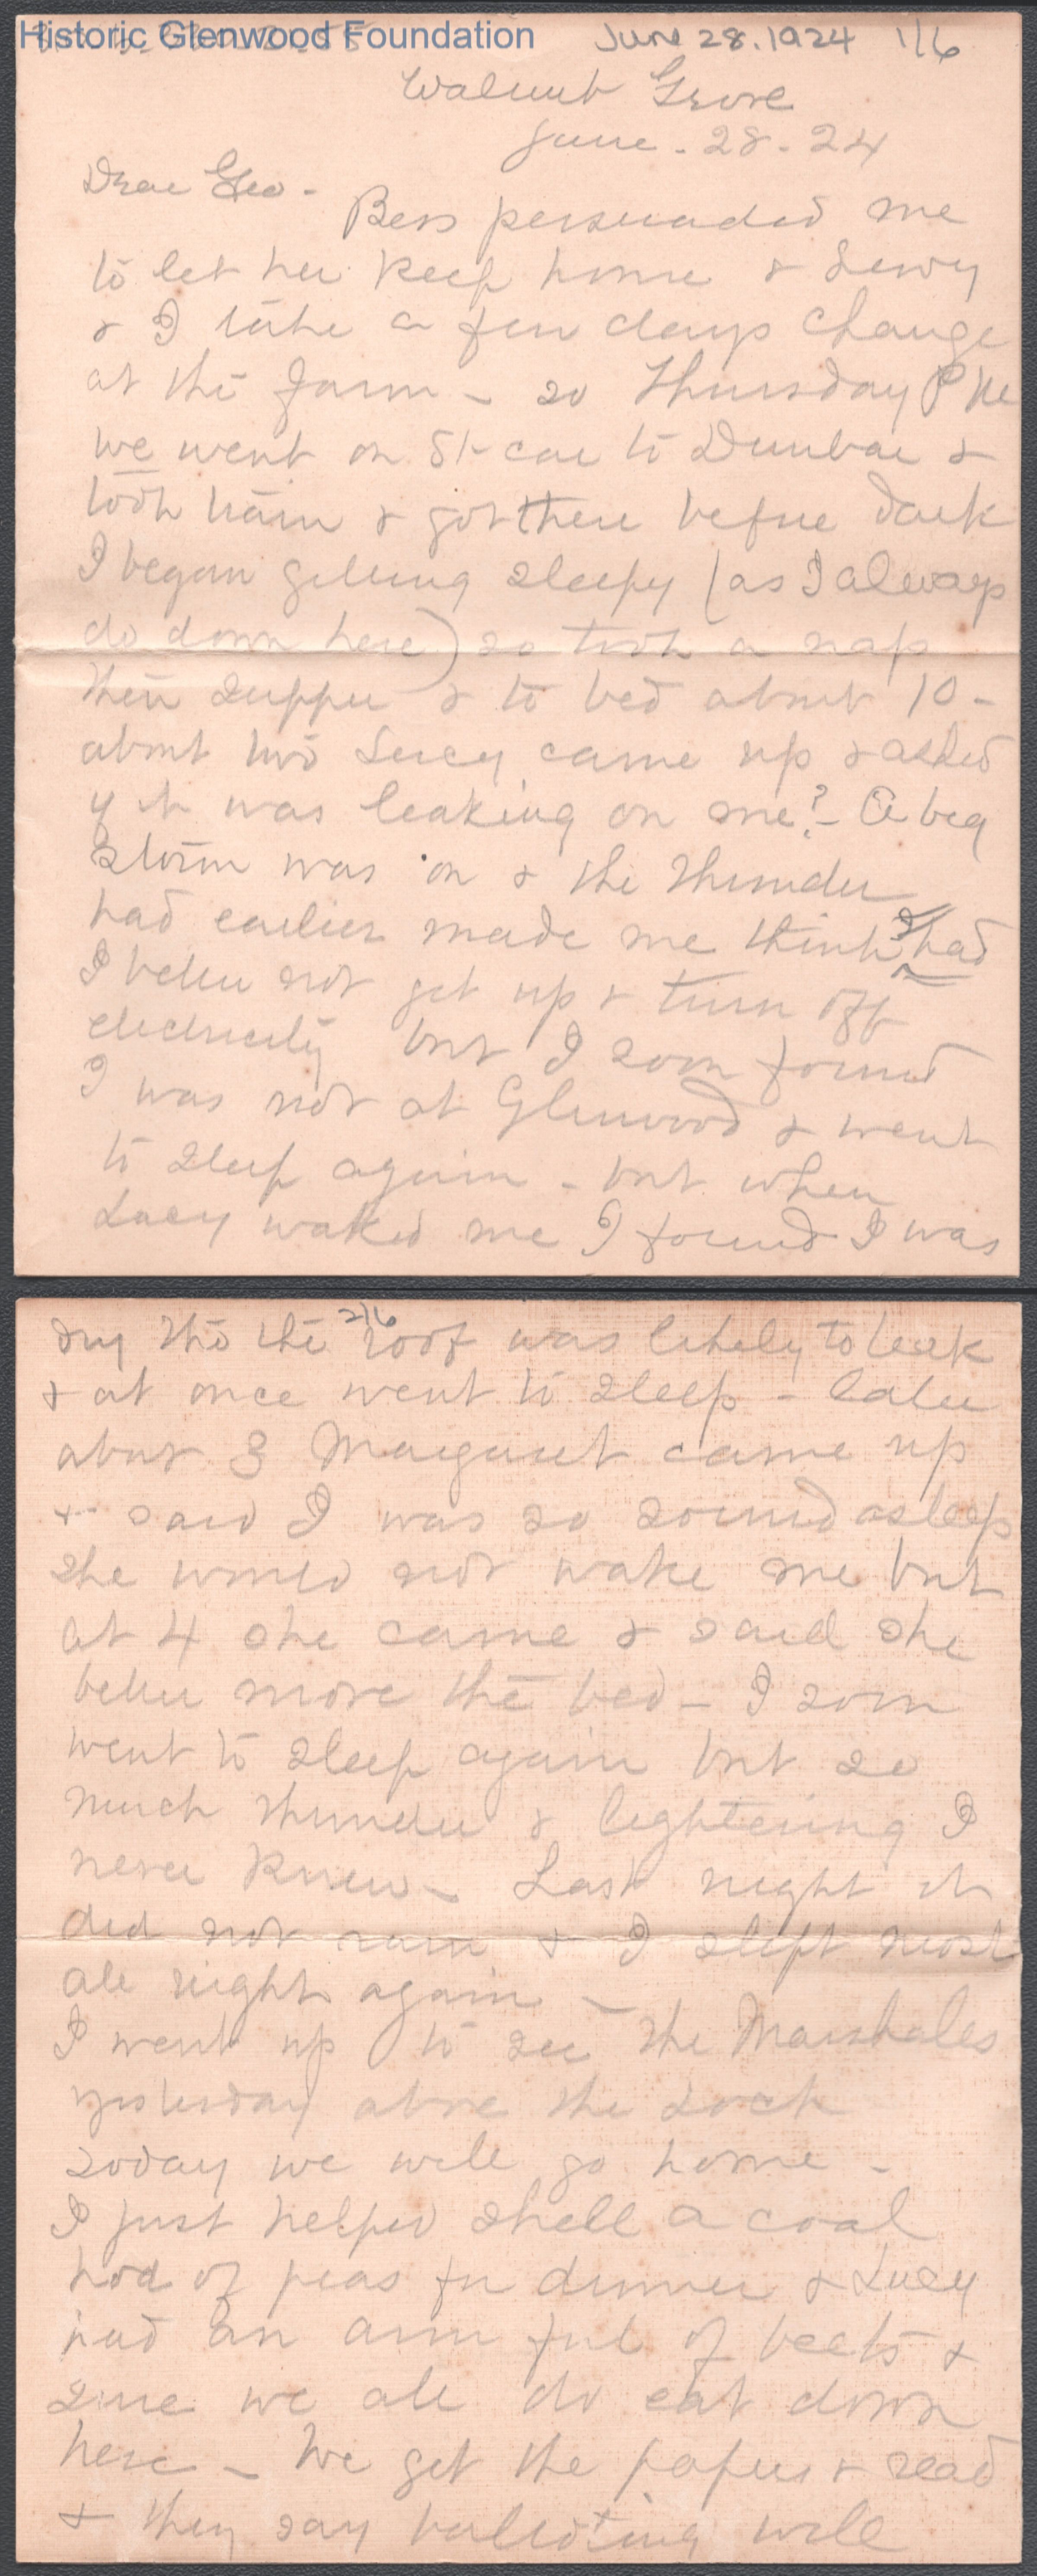 Historic Glenwood Foundation
June 28.1924 1/6
Walnut Grove
June - 28 - 24
Dear Geo -
Bess persuaded me
to let her keep house &
& I take a few days change
at the farm - so Thursday P M
we went on St car to Dunbar &
took train & got there before dark
I began getting sleepy (as I always
do down here) so took a nap
then supper & to bed about 10 -
about two Lucy came up & asked
if it was leaking on me? - A big
storm was on & the thunder
had earlier made me think I had
I better not get up & turn off
electricity but I soon found
I was not at Glenwood & went
to sleep again - but when
Lucy waked me I found I was
2/6
dry tho the roof was likely to leak
& at once went to sleep - later
about 3 Margaret came up
& said I was so sound asleep
she would not wake me but
at 4 she came & said she
better move the bed - I soon
went to sleep again but so
much thunder & lightening I
never knew - Last night it
did not rain & I slept most
all night again -
I went up to see the Marshales
yesterday above the Lock
today we will go home -
I just helped shell a coal
hod of peas for dinner & Lucy
had an arm ful of beets &
sure we all do eat down
here - We get the papers & read
& they say balloting will